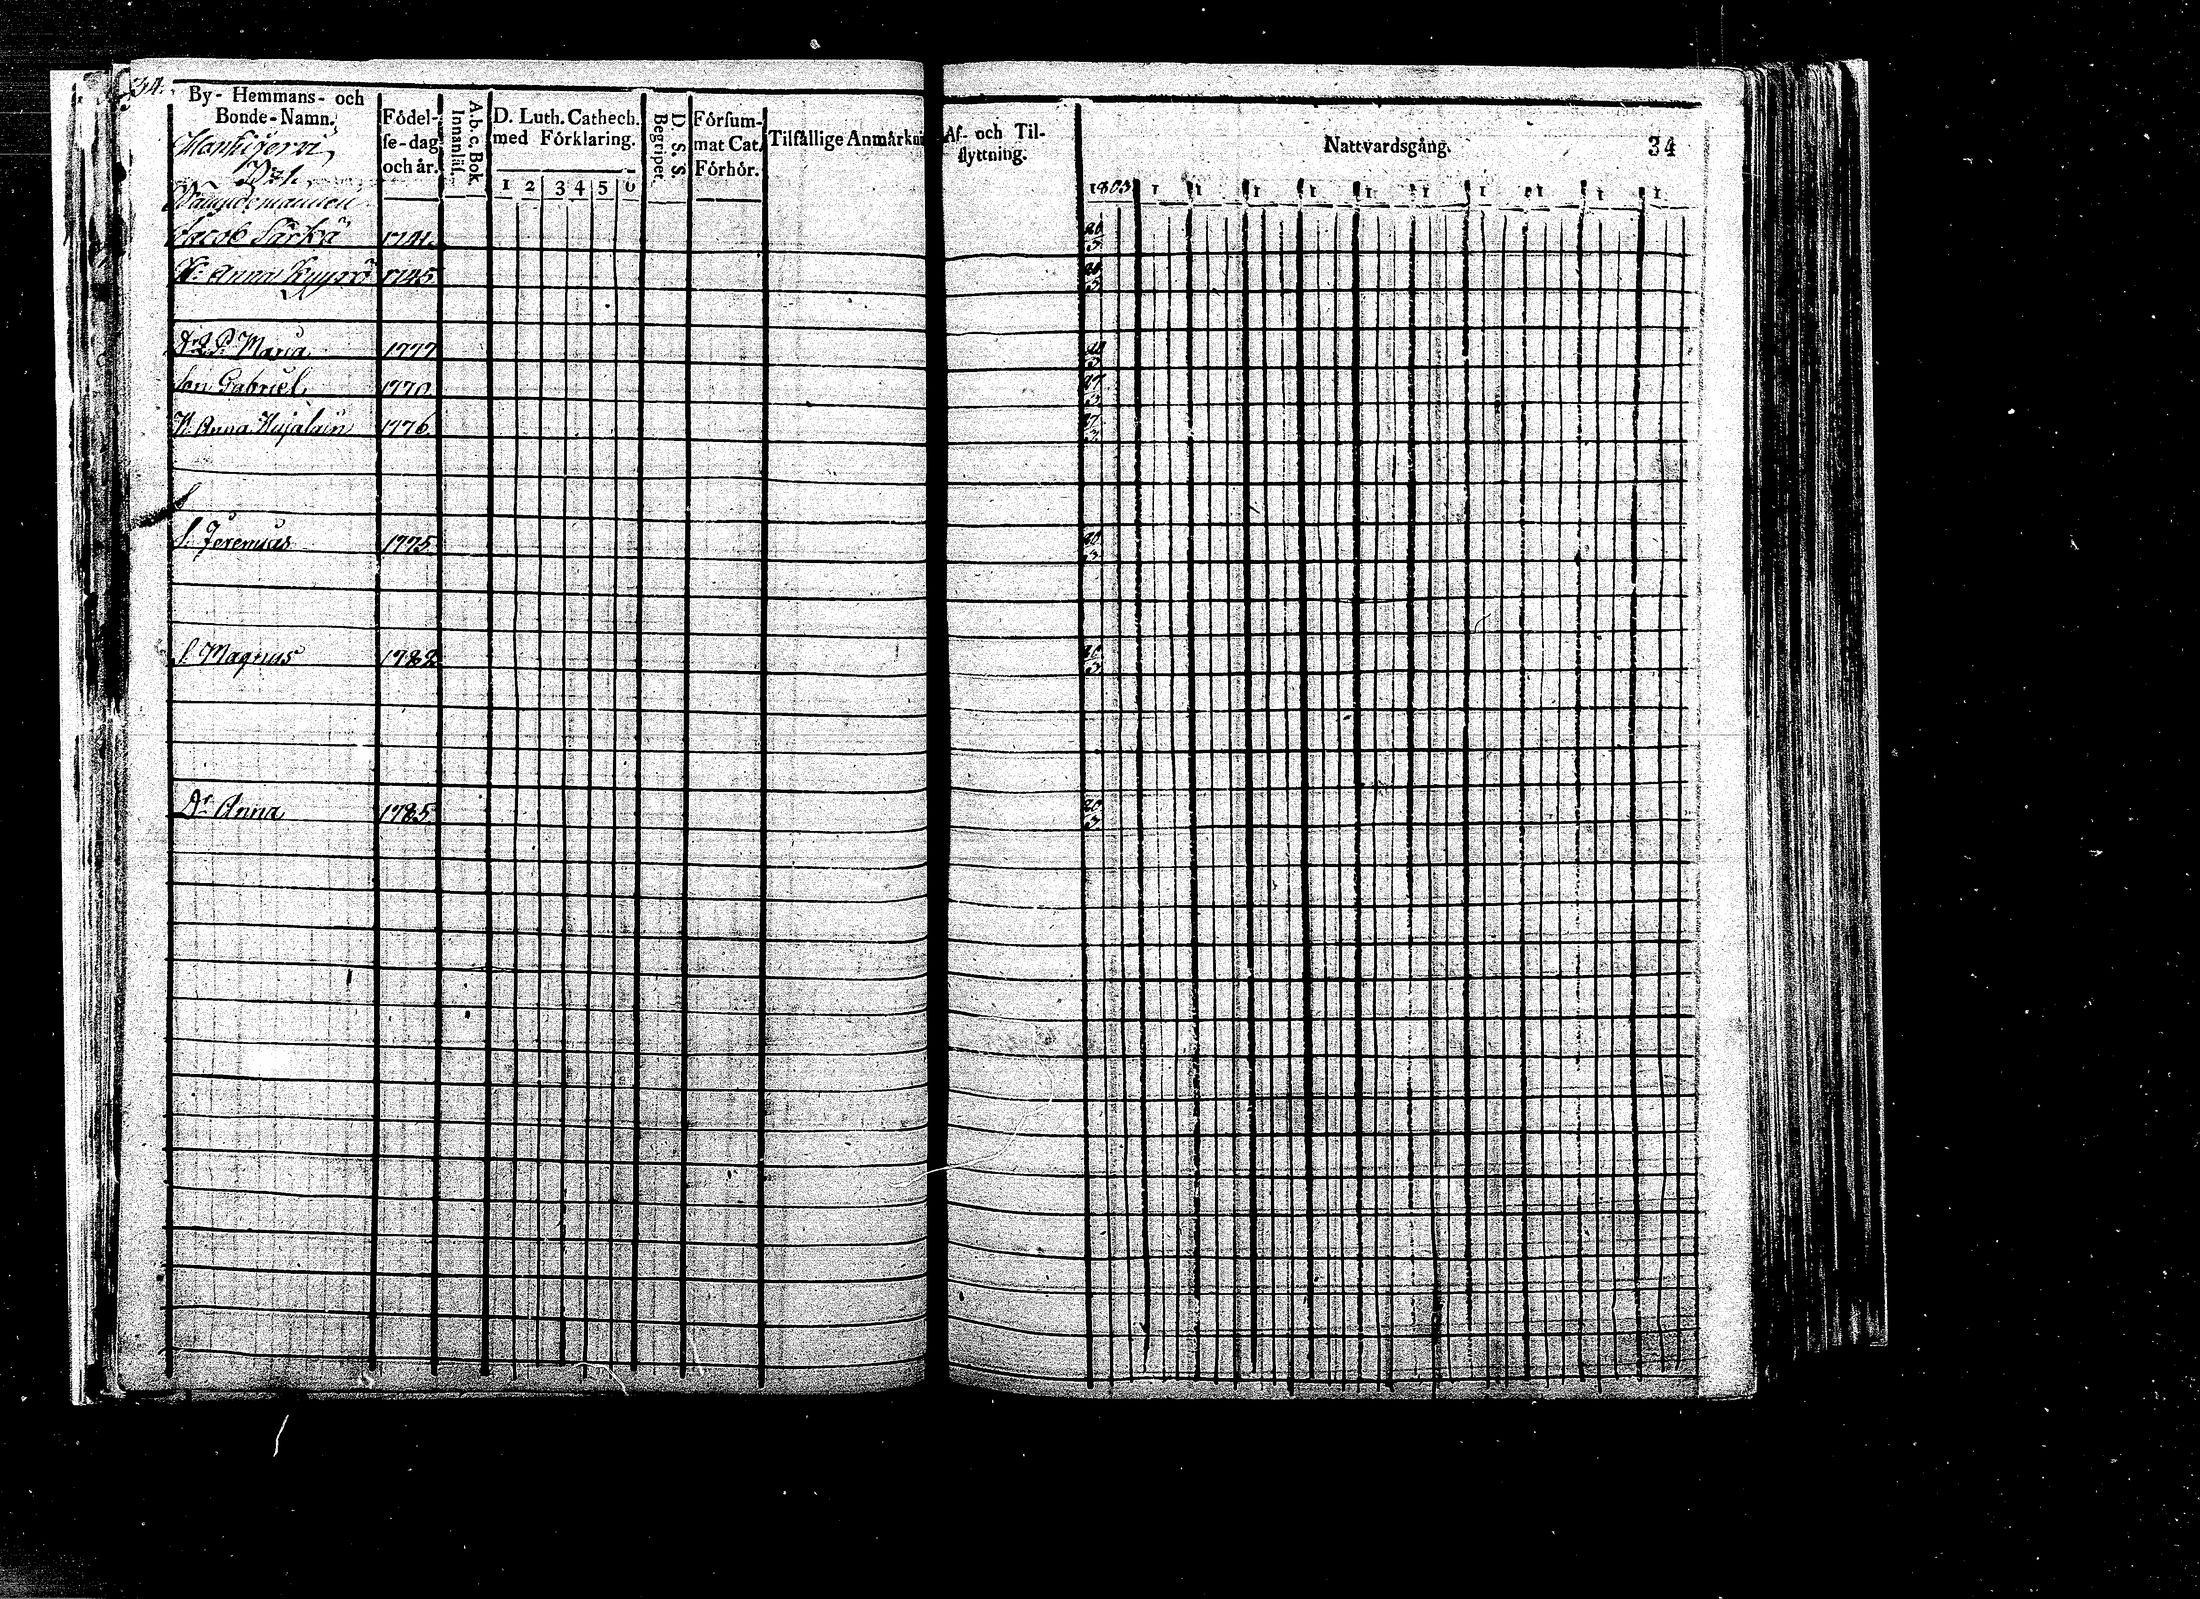 34.
By- Hemmans- och
Bonde-Namn.
Födel-
se-dag
och år.
A.b.c, Bok.
Innanläs.
D. Luth. Cathech.
med Förklaring.
1 2 3 4 5 6
D. S. S.
Begriper.
Försum-
mat Cat.
Förhör.
Tilfällige Anmärkni
Af- och Til-
flyttning.
Nattvardsgång.
34
1803 1 1 1 1 1 1 1 1 1 1
Mankijervi
N:o 1.
Jacob Särkä 1741. 20/3
H: Anna Kyyrö 1745 20/3
Dr Maria 1777 20/3
Son Gabriel 1770 27/3
H. Anna Kujalain 1776 27/3
S. Jeremias 1775 20/3
S. Magnus 1782 20/3
Dr Anna 1785 20/3